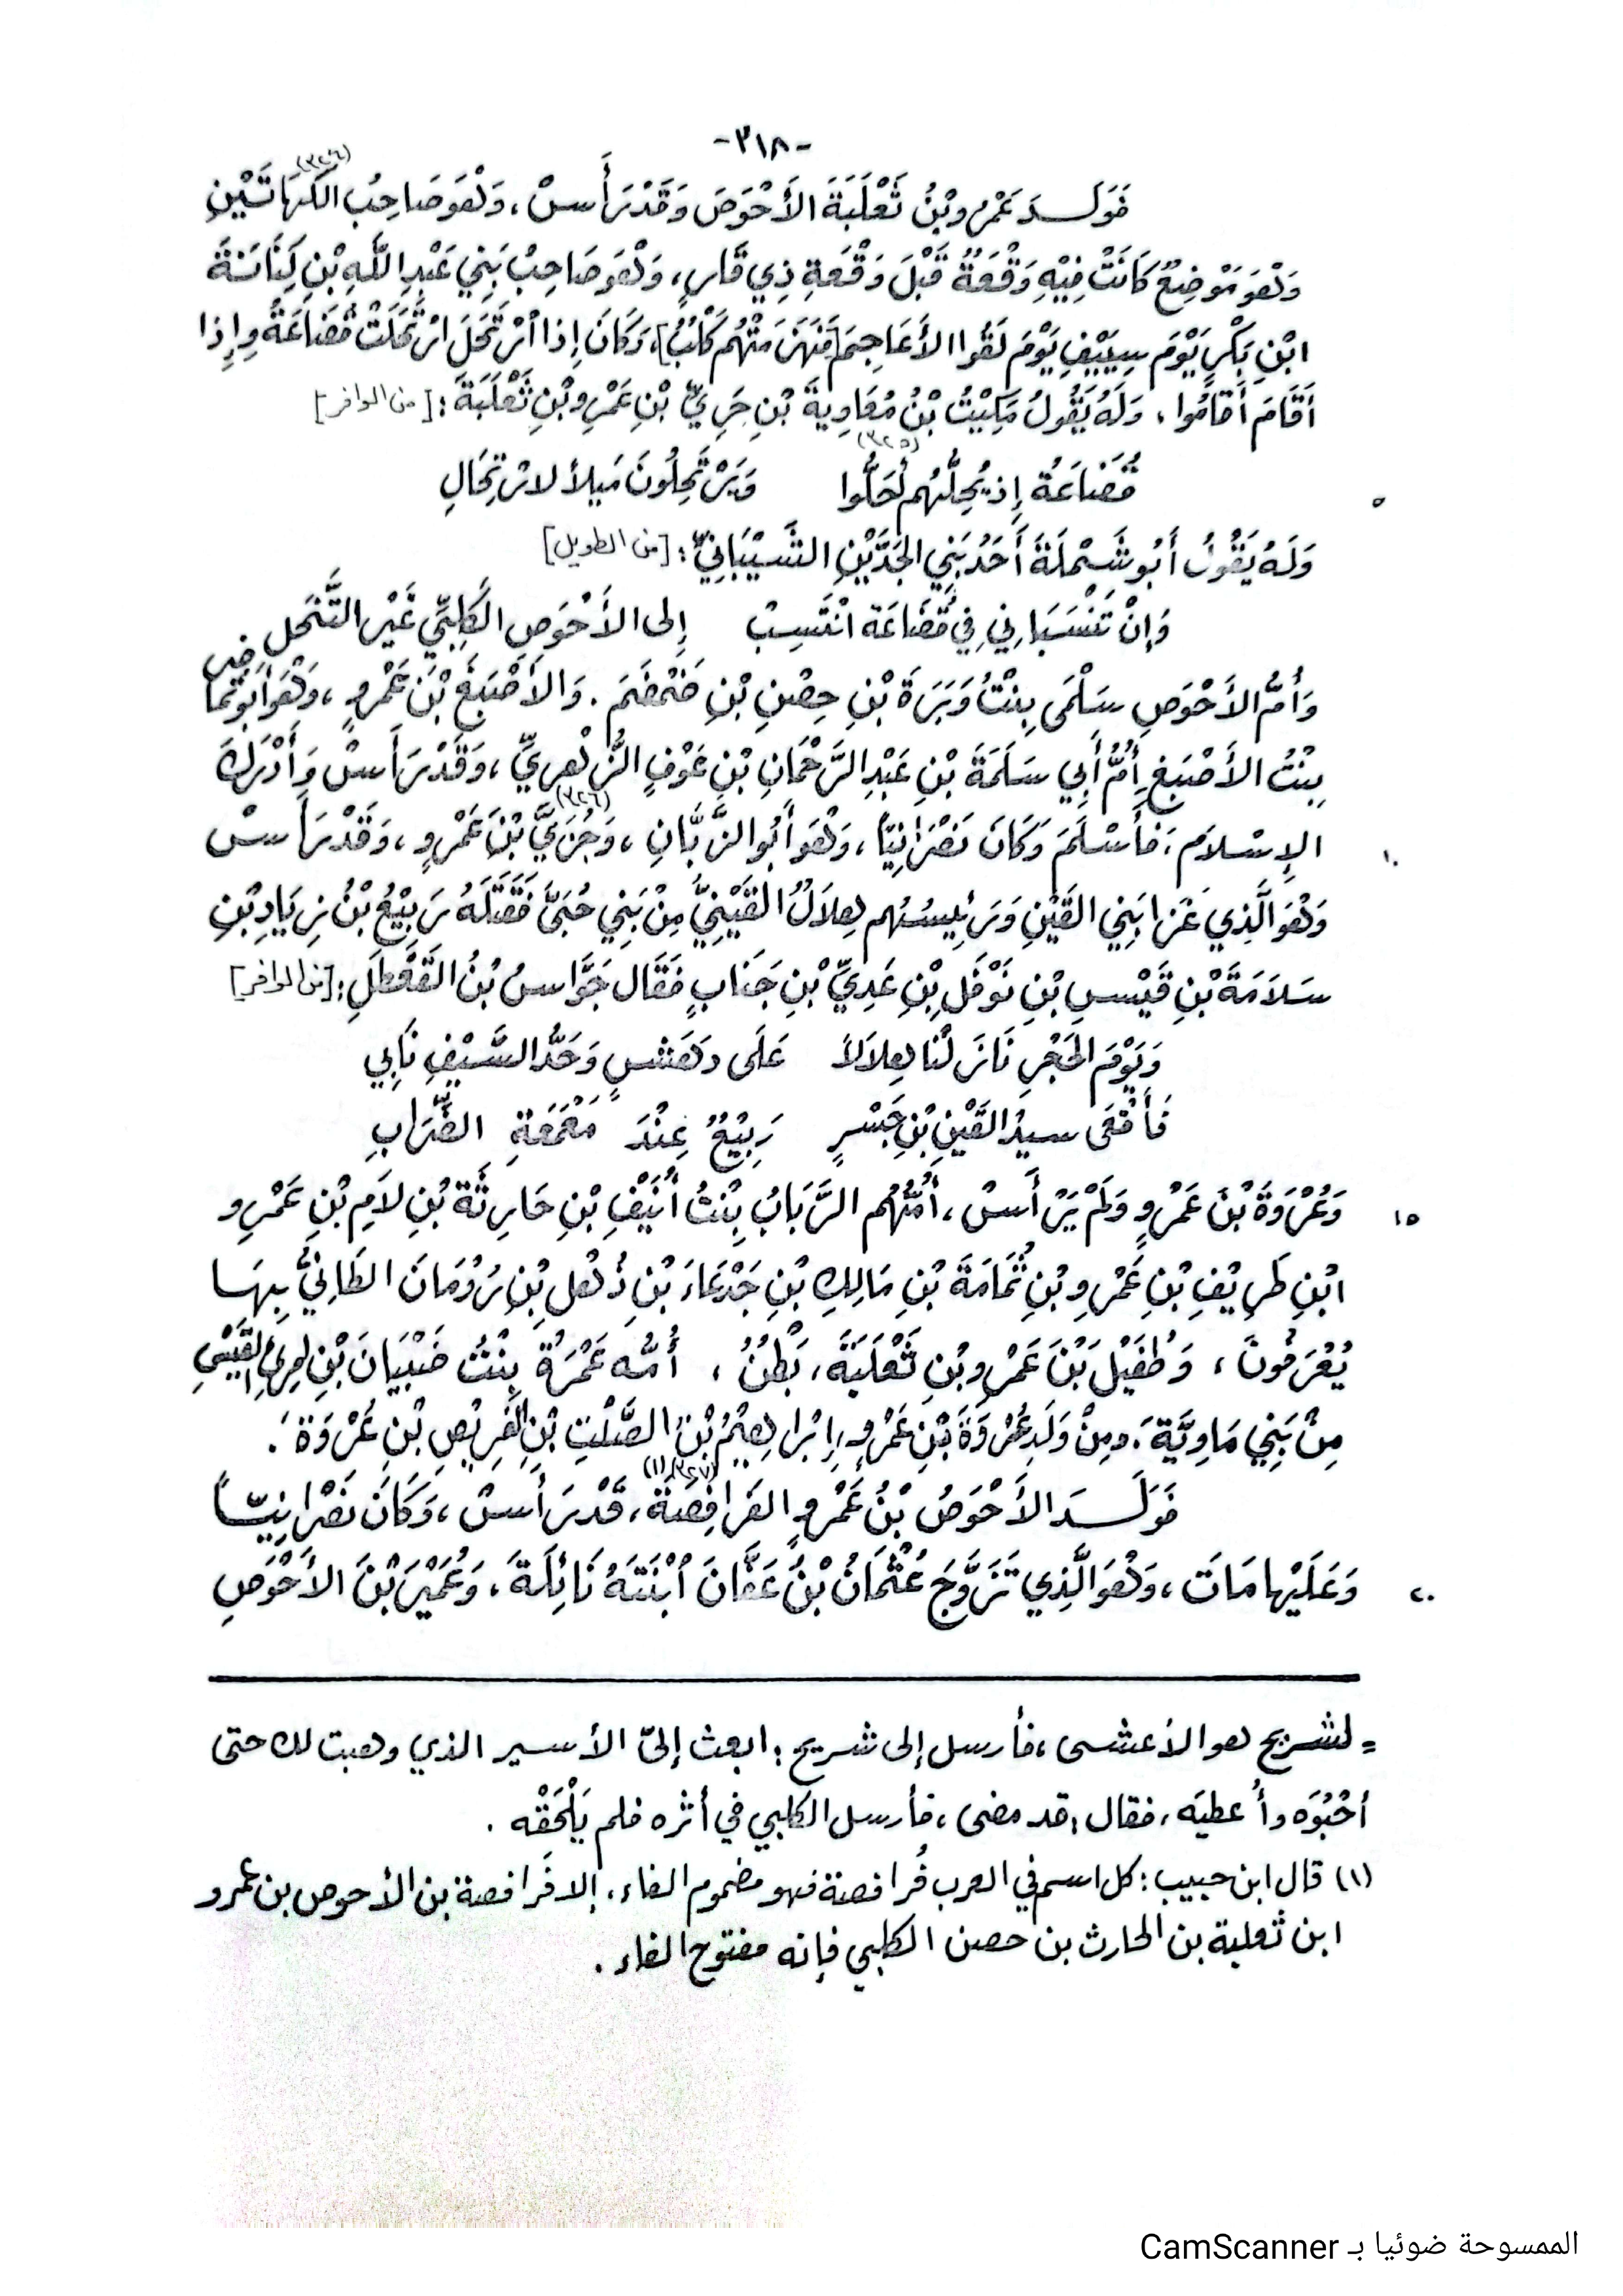 -٣١٨-
فَوَلَـدَ عَمْرُو بْنُ ثَعْلَبَةَ الأَحْوَصَ وَقَدْ رَأَسَ، وَهُوَ صَاحِبُ الكَهَاتَيْنِ (٣٢٤)
وَهُوَ مَوْضِعٌ كَانَتْ فِيْهِ وَقْعَةٌ قَبْلَ وَقْعَةِ ذِي قَارٍ، وَهُوَ صَاحِبُ بَنِي عَبْدِ اللَّهِ بْنِ كِنَانَةَ
ابْنِ بَكْرٍ يَوْمَ سِيَيْفٍ يَوْمَ لَقُوا الأَعَاجِمَ [فَهَزَمَتْهُم كَلْبٌ]، وَكَانَ إِذَا ارْتَحَلَ ارْتَحَلَتْ قُضَاعَةُ وإِذَا
أَقَامَ أَقَامُوا، وَلَهُ يَقُولُ مَكِيْثُ بْنُ مُعَاوِيةَ بْنِ جَرِيِّ بْنِ عَمْرِو بْنِ ثَعْلَبَةَ: [من الوافر]
(٣٢٥)
قُضَاعَةُ إِذ يُحِلُّهُم لَحَلُّوا وَيَرْتَحِلُونَ مَيلاً لارْتِحَالِ
٥
وَلَهُ يَقُولُ أَبُو شَمْلَةَ أَحَدُ بَنِي الجَدَّيْنِ الشَّيْبَانِيُّ: [من الطويل]
وَإِنْ تَنْسَبَانِي فِي قُضَاعَة انْتَسِبْ إِلى الأَحْوَصِ الكَلْبِيِّ غَيْر التَّنَحل
وَأُمُّ الأَحْوَصِ سَلْمَى بِنْتُ وَبَرَةَ بْنِ حِصْنِ بْنِ ضَمْضَمَ. وَالأَصْبَغَ بْنَ عَمْرٍو، وَهُوَ أَبُو تُمَاضِر
بِنْتُ الأَصْبَغِ أُمُّ أَبِي سَلَمَةَ بْنِ عَبْدِ الرَّحْمَانِ بْنِ عَوْفٍ الزُّهْرِيِّ، وَقَدْ رَأَسَ وَأَدْرَكَ
(٣٢٦)
الإِسْلاَمَ، فَأَسْلَمَ وَكَانَ نَصْرَانِيّاً، وَهُوَ أَبُو الزَّبَّانِ، وَجُزَيَّ بْنَ عَمْرٍو، وَقَدْ رَأَسَ
١٠
وَهُوَ الَّذِي غَزَا بَنِي القَيْنِ وَرَئِيسُهُم هِلاَلُ القَيْنِيُّ مِنْ بَنِي حُبَيٍّ فَقَتَلَهُ رَبِيْعُ بْنُ زِيَادِ بْنِ
سَلاَمَةَ بْنِ قَيْسِ بْنِ نَوْفَلِ بْنِ عَدِيِّ بْنِ جَنَابٍ فَقَال جَوَّاسُ بْنُ القَعْطَلِ: [من الوافر]
وَيَوْمَ الحَجْرِ نَازَلْنَا هِلاَلاً عَلَى دَهَشٍ وَحَدُّ السَّيْفِ نَابِي
فَأَقْعَى سيدُ القَيْنِ بْنِ جَسْرٍ رَبِيْعٌ عِنْدَ مَعْمَعَةِ الضِّرَابِ
وَعُرْوَةَ بْنَ عَمْرٍو وَلَمْ يَرْأَسْ، أُمُّهُم الرَّبَابُ بِنْتُ أُنَيْفِ بْنِ حَارِثَةَ بْنِ لاَمِ بْنِ عَمْرِو
١٥
ابْنِ طَرِيْفِ بْنِ عَمْرِو بْنِ ثُمَامَةَ بْنِ مَالِكِ بْنِ جَدْعَاءَ بْنِ ذُهْلِ بْنِ رُومَانَ الطَائِيُّ بِهَا
يُعْرَفُونَ، وَطُفَيْلَ بْنَ عَمْرِو بْنِ ثَعْلَبَةَ، بَطْنٌ، أُمُّه عَمْرَةُ بِنْتُ ضَبْيَانَ بْنِ امرئ القَيْسِ
مِنْ بَنِي مَاوِيَّةَ، ومِنْ وَلَدِ عُرْوَةَ بْنِ عَمْرٍو، إِبْرَاهِيْمُ بْنُ الصَّلْتِ بْنِ الفَرِيْصِ بْنِ عُرْوَةَ.
فَوَلَـدَ الأَحْوَصُ بْنُ عَمْرٍو الفَرَافِصَةَ (٣٢٧) (١)، قَدْ رَأَسَ، وَكَانَ نَصْرَانِيّاً
وَعَلَيْها مَاتَ، وَهُوَ الَّذِي تَزَوَّجَ عُثْمَانُ بْنُ عَفَّانَ ابْنَتَهُ نَائِلَةَ، وَعُمَيْرَ بْنَ الأَحْوَصِ
٢٠
= لشريح هو الأعشى، فأرسل إلى شريح: ابعث إليّ الأسير الذي وهبت لك حتى
أحْبُوَه وأُعطيَه، فقال: قد مضى، فأرسل الكلبي في أثره فلم يَلْحَقْه.
(١) قال ابن حبيب: كل اسم في العرب فُرافصة فهو مضموم الفاء، إلا فَرافصة بن الأحوص بن عمرو
ابن ثعلبة بن الحارث بن حصن الكلبي فإنه مفتوح الفاء.
الممسوحة ضوئيا بـ CamScanner